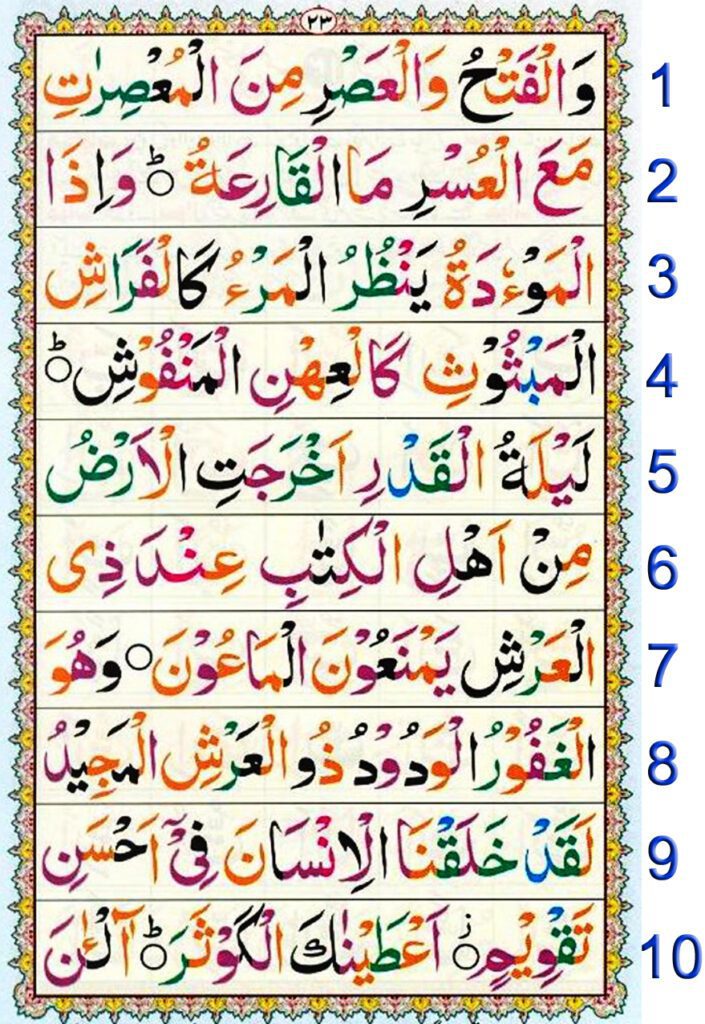 ٢٣
وَالْفَتْحُ وَالْعَصْرِ مِنَ الْمُعْصِرٰتِ 1
مَعَ الْعُسْرِ مَا الْقَارِعَةُ ؕ وَاِذَا 2
الْمَوْءٗدَةُ يَنْظُرُ الْمَرْءُ كَالْفَرَاشِ 3
الْمَبْثُوْثِ كَالْعِهْنِ الْمَنْفُوْشِ ؕ 4
لَيْلَةُ الْقَدْرِ اَخْرَجَتِ الْاَرْضُ 5
مِنْ اَهْلِ الْكِتٰبِ عِنْدَ ذِى 6
الْعَرْشِ يَمْنَعُوْنَ الْمَاعُوْنَ ○ وَهُوَ 7
الْغَفُوْرُ الْوَدُوْدُ ذُو الْعَرْشِ الْمَجِيْدُ 8
لَقَدْ خَلَقْنَا الْاِنْسَانَ فِىْٓ اَحْسَنِ 9
تَقْوِيْمٍ ○ز اَعْطَيْنٰكَ الْكَوْثَرَ ؕ آٰلْـٰٔنَ 10